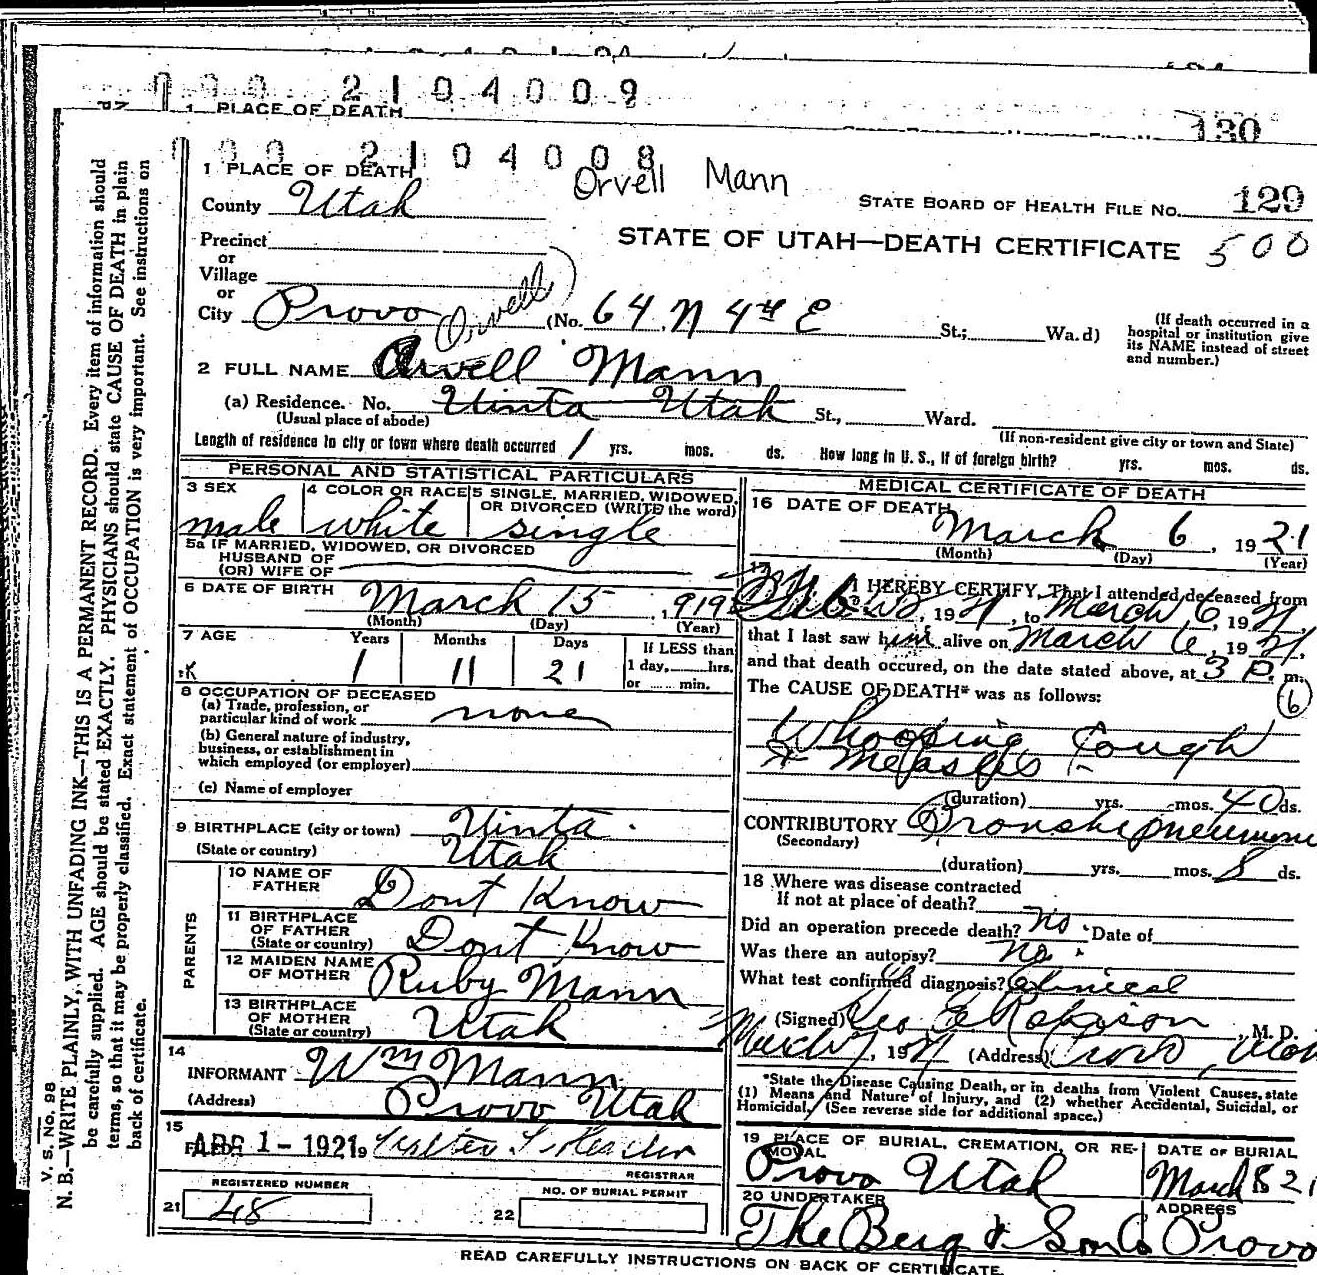 000 2104009
1 PLACE OF DEATH
130
000 2104008
1 PLACE OF DEATH
Orvell Mann
County Utah
STATE BOARD OF HEALTH FILE NO. 129
STATE OF UTAH—DEATH CERTIFICATE 500
Precinct
or
Village
or
City Provo Orvell (No. 64 N 4th E St.; Wa.d)
(If death occurred in a hospital or institution give its NAME instead of street and number.)
2 FULL NAME Orvell Mann
(a) Residence. No. Uinta Utah St., Ward.
(Usual place of abode)
(If non-resident give city or town and State)
Length of residence in city or town where death occurred 1 yrs. mos. ds. How long in U. S., if of foreign birth? yrs. mos. ds.
PERSONAL AND STATISTICAL PARTICULARS
3 SEX
male
4 COLOR OR RACE
white
5 SINGLE, MARRIED, WIDOWED, OR DIVORCED (WRITE the word)
single
5a IF MARRIED, WIDOWED, OR DIVORCED
HUSBAND OF
(OR) WIFE OF
6 DATE OF BIRTH
March 15, 1919
(Month) (Day) (Year)
7 AGE
Years Months Days
If LESS than
1 11 21
1 day, hrs.
or min.
8 OCCUPATION OF DECEASED
(a) Trade, profession, or
particular kind of work none
(b) General nature of industry,
business, or establishment in
which employed (or employer)
(c) Name of employer
9 BIRTHPLACE (city or town) Uinta
(State or country) Utah
PARENTS
10 NAME OF FATHER Dont Know
11 BIRTHPLACE OF FATHER (State or country) Dont Know
12 MAIDEN NAME OF MOTHER Ruby Mann
13 BIRTHPLACE OF MOTHER (State or country) Utah
14
INFORMANT Wm Mann
(Address) Provo Utah
15
FILED APR 1-1921 19
REGISTRAR
REGISTERED NUMBER
21 48
NO. OF BURIAL PERMIT
22
MEDICAL CERTIFICATE OF DEATH
16 DATE OF DEATH
March 6, 1921
(Month) (Day) (Year)
17
I HEREBY CERTIFY, That I attended deceased from
, 1921, to March 6, 1921,
that I last saw him alive on March 6, 1921,
and that death occured, on the date stated above, at 3 P. m.
The CAUSE OF DEATH* was as follows: 6
Whooping Cough
& Measles
(duration) yrs. mos. 40 ds.
CONTRIBUTORY Bronchopneumonia
(Secondary)
(duration) yrs. mos. 8 ds.
18 Where was disease contracted
If not at place of death?
Did an operation precede death? no Date of
Was there an autopsy? no
What test confirmed diagnosis? Clinical
(Signed) Geo E Robison, M. D.
March 7, 1921 (Address) Provo, Utah
*State the Disease Causing Death, or in deaths from Violent Causes, state
(1) Means and Nature of Injury, and (2) whether Accidental, Suicidal, or
Homicidal. (See reverse side for additional space.)
19 PLACE OF BURIAL, CREMATION, OR REMOVAL
Provo Utah
DATE OF BURIAL
March 8 21
20 UNDERTAKER
The Berg & Son Co
ADDRESS
Provo
READ CAREFULLY INSTRUCTIONS ON BACK OF CERTIFICATE.
V. S. NO. 98
N. B.—WRITE PLAINLY, WITH UNFADING INK—THIS IS A PERMANENT RECORD. Every item of information should
be carefully supplied. AGE should be stated EXACTLY. PHYSICIANS should state CAUSE OF DEATH in plain
terms, so that it may be properly classified. Exact statement of OCCUPATION is very important. See instructions on
back of certificate.